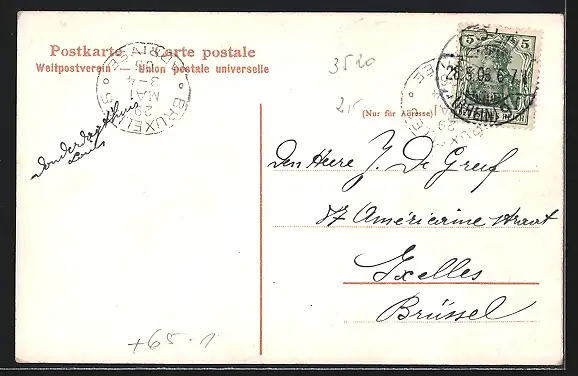 Postkarte Carte postale
Weltpostverein Union postale universelle
BRUXELLES
ARRIVÉE
29
MAI
3-4
05
3520
25
5 5
(Nur für Adresse)
Donderdag thuis
Louis
Den Heere J. De Greef
87 Américaine straat
Ixelles
Brüssel
+65.1